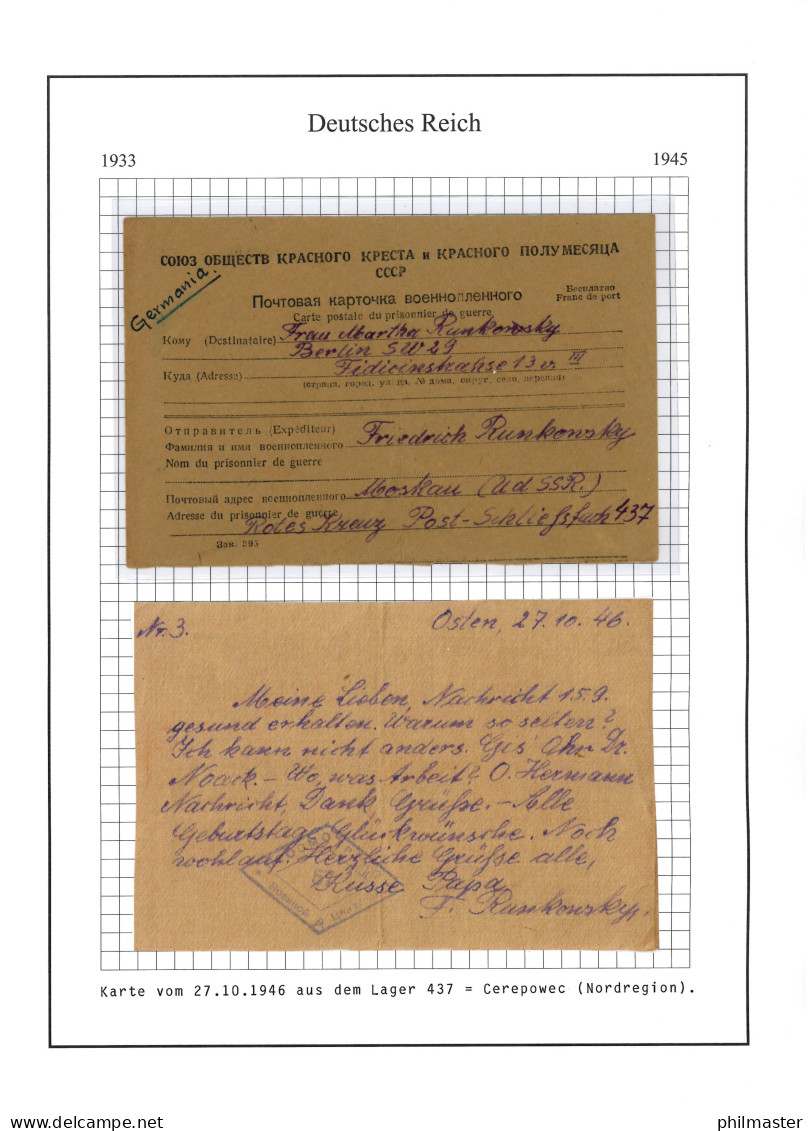 Deutsches Reich
1933 1945
СОЮЗ ОБЩЕСТВ КРАСНОГО КРЕСТА и КРАСНОГО ПОЛУМЕСЯЦА
СССР
Germania.
Почтовая карточка военнопленного
Бесплатно
Franc de port
Carte postale du prisonnier de guerre
Кому (Destinataire) Frau Martha Runkowsky
Berlin SW 29
Куда (Adresse) Fidicinstrahse 13 v. III
(страна, город, улица, № дома, округ, село, деревня)
Отправитель (Expéditeur)
Фамилия и имя военнопленного Friedrich Runkowsky
Nom du prisonnier de guerre
Почтовый адрес военнопленного Moskau (UdSSR.)
Adresse du prisonnier de guerre
Rotes Kreuz Post-Schließfach 437
Зак. 395
Nr. 3. Osten, 27. 10. 46.
Meine Lieben, Nachricht 15.9.
gesund erhalten. Warum so selten?
Ich kann nicht anders. Dr.
Noack. – Wo, was Arbeit? O. Hermann
Nachricht, Dank, Grüße. – Alle
Geburtstage Glückwünsche. Noch
wohlauf. Herzliche Grüße alle,
Küsse Papa
F. Runkowsky.
Karte vom 27.10.1946 aus dem Lager 437 = Cerepowec (Nordregion).
philmaster